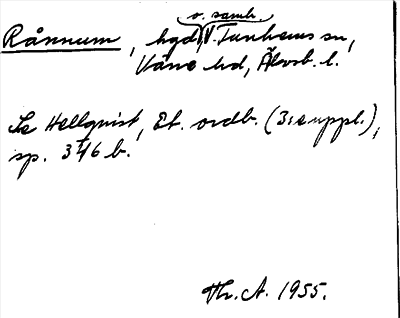 s. samh.
Rånnum, hgd, V. Tunhems sn,
Väne hd, Älvsb. l.
Se Hellquist, Et. ordb. (3:e uppl.),
sp. 346 b.
Th. A. 1955.